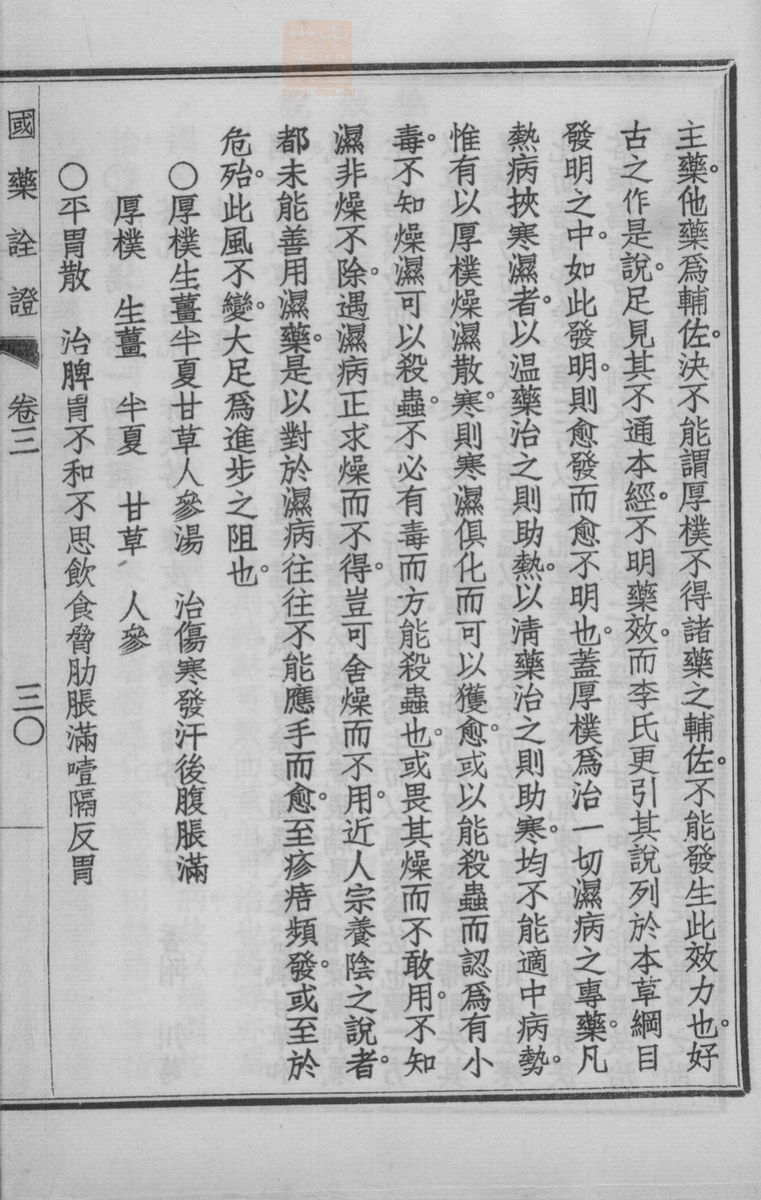 主藥。他藥爲輔佐。決不能謂厚樸不得諸藥之輔佐。不能發生此效力也。好
古之作是說。足見其不通本經。不明藥效。而李氏更引其說列於本草綱目
發明之中。如此發明。則愈發而愈不明也。蓋厚樸爲治一切濕病之專藥。凡
熱病挾寒濕者。以温藥治之則助熱。以淸藥治之則助寒。均不能適中病勢。
惟有以厚樸燥濕散寒。則寒濕俱化而可以獲愈。或以能殺蟲而認爲有小
毒。不知燥濕可以殺蟲。不必有毒而方能殺蟲也。或畏其燥而不敢用。不知
濕非燥不除。遇濕病正求燥而不得。豈可舍燥而不用。近人宗養陰之說者。
都未能善用濕藥。是以對於濕病往往不能應手而愈。至疹㾦頻發。或至於
危殆。此風不變。大足爲進步之阻也。
〇厚樸生薑半夏甘草人參湯　治傷寒發汗後腹脹滿
厚樸　生薑　半夏　甘草　人參
〇平胃散　治脾胃不和不思飮食脅肋脹滿噎隔反胃
國藥詮證　卷三　三〇